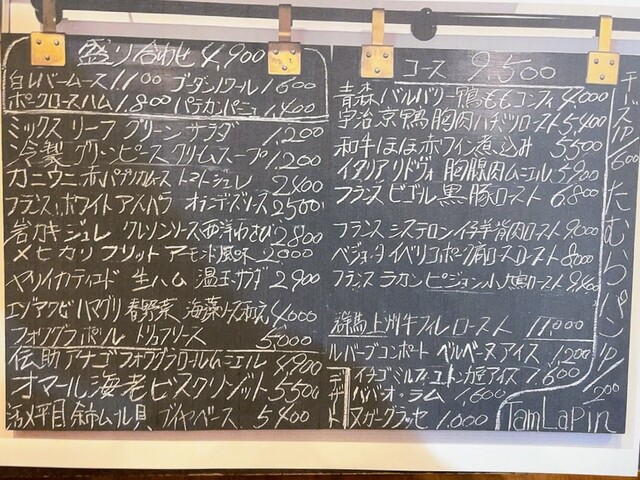 盛り合わせ 4,900
白レバームース 1100 ゴーダノワール 1600
ポークロースハム 1,800 パテカンパーニュ 1,400
ミックスリーフグリーンサラダ 1,200
冷製グリーンピースクリームスープ 1,200
カニウニ赤パプリカムーストマトジュレ 2400
フランスホワイトアスパラ オランデーズソース 2500
岩カキジュレ クレソンソース西洋わさび 2800
メヒカリフリットアーモンド風味 2000
ヤリイカティエド 生ハム 温玉サラダ 2900
エゾアワビハマグリ春野菜 海藻ソース和え 4000
フォワグラポワレ トリュフソース 5000
伝助アナゴフォワグラロールムニエル 4,900
オマール海老ビスクリゾット 5500
活〆平目 ムール貝 ブイヤベース 5400
コース 9,500
青森バルバリー鴨ももコンフィ 4,000
宇治京鴨胸肉ハチミツロースト 5,400
和牛ほほ赤ワイン煮込み 5500
イタリアリドヴォ胸腺肉ムニエル 5900
フランスビゴール黒豚ロースト 6.800
フランスシステロン仔羊背肉ロースト 9000
ベジョータイベリコポーク肩ロースロースト 8000
フランスラカンピジョン小鳩ロースト 9400
群馬上州牛フィレロースト 11,000
ルバーブコンポート ベルベーヌアイス 1,200
イチゴミルフィユ アイス 1,600
ババオ・ラム 1,600
ヌガーグラッセ 1,000
デザート
チーズ 1P/600
たむらパン 1P/200
TamLaPin